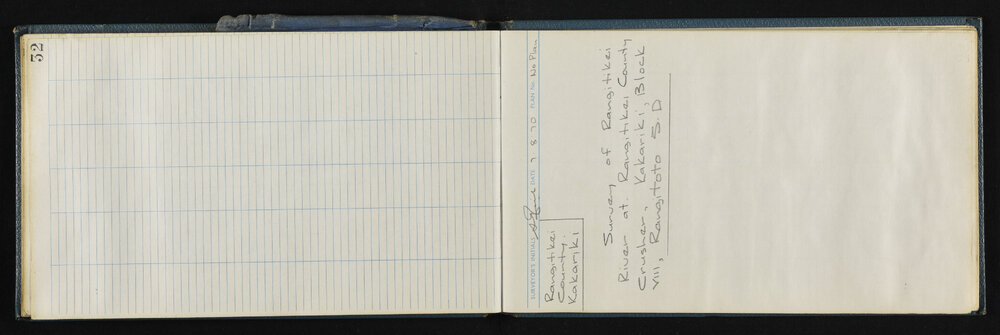 32
SURVEYOR'S INITIALS DATE 7 8 70 PLAN No. No Plan
Rangitikei
County.
Kakariki
Survey of Rangitikei
River at Rangitikei County
Crusher, Kakariki, Block
VIII, Rangitoto S.D